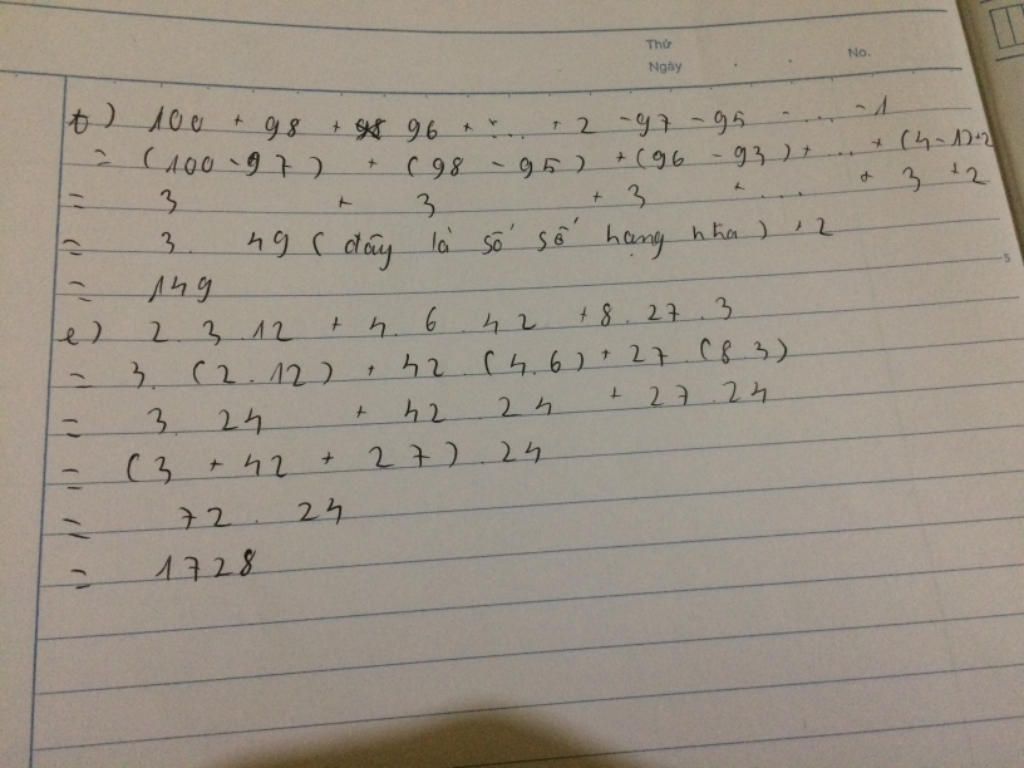 Thứ
Ngày
No.
t) 100 + 98 + 96 + ... + 2 - 97 - 95 - ... - 1
= (100 - 97) + (98 - 95) + (96 - 93) + ... + (4 - 1) + 2
= 3 + 3 + 3 + ... + 3 + 2
= 3. 49 (đây là số số hạng nha) + 2
= 149
e) 2. 3. 12 + 4. 6. 42 + 8. 27. 3
= 3. (2. 12) + 42 (4. 6) + 27. (8. 3)
= 3. 24 + 42. 24 + 27. 24
= (3 + 42 + 27). 24
= 72. 24
= 1728
5